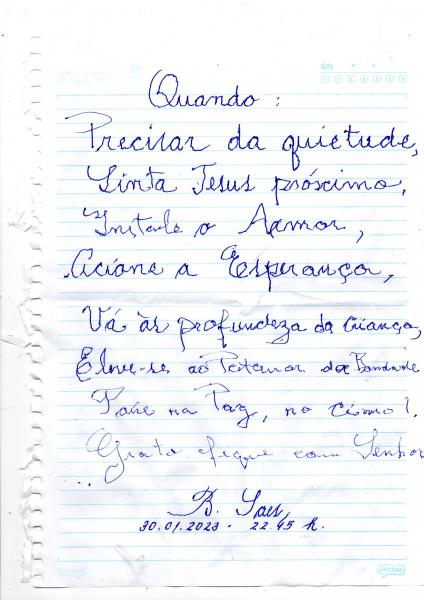 data
Quando:
Precisar da quietude,
Sinta Jesus próximo,
Instale o Aamor,
Acione a Esperança,
Vá às profundeza da Criança,
Eleve-se ao Patamar da Bondade
Paire na Paz, no
Grato fique com Senhor
...
B. Saes,
30.01.2023 - 22.45 h.
jandaia